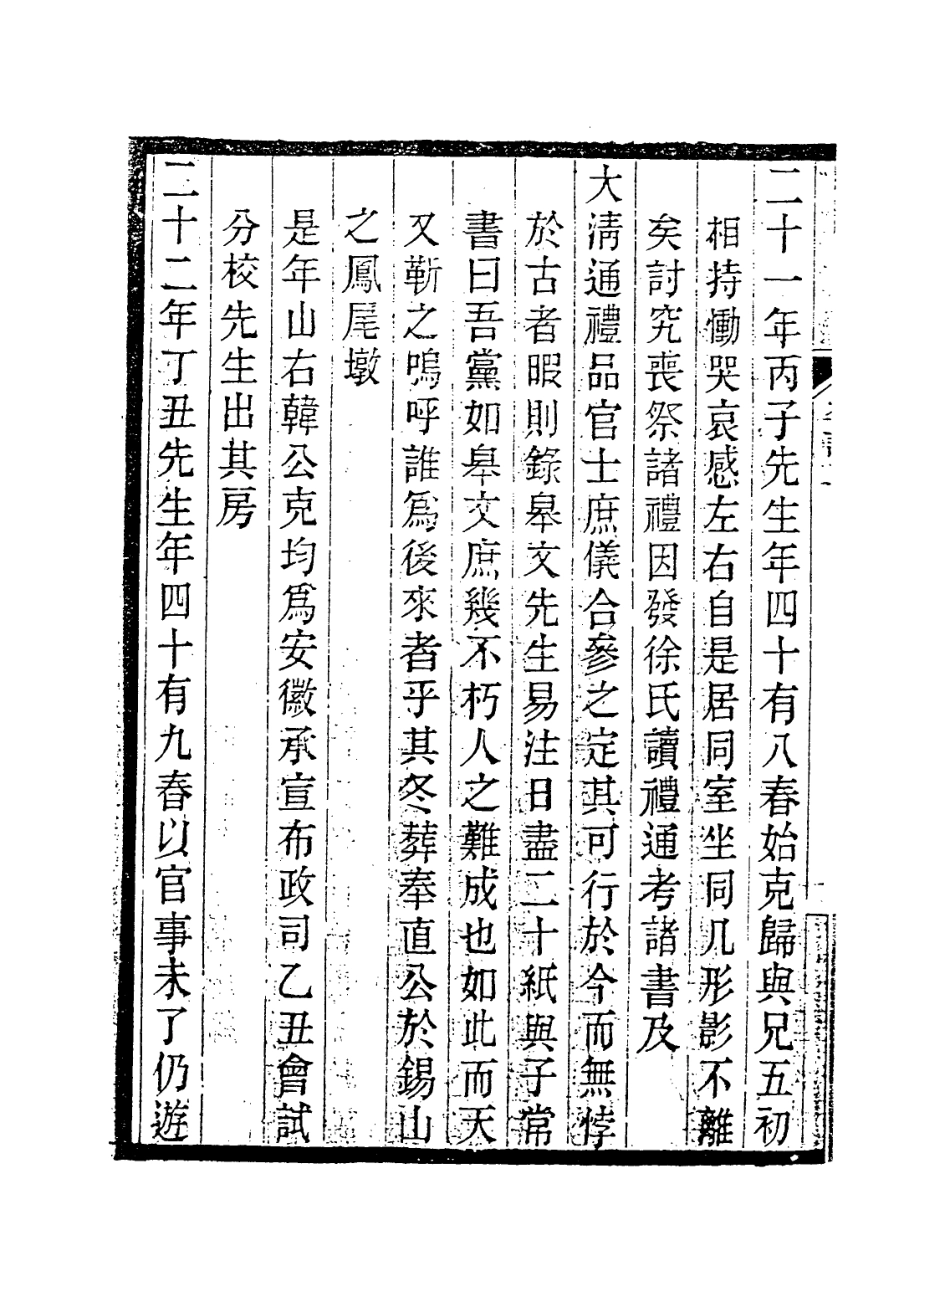 二十一年丙子先生年四十有八春始克歸與兄五初
相持慟哭哀感左右自是居同室坐同几形影不離
矣討究喪祭諸禮因發徐氏讀禮通考諸書及
大清通禮品官士庶儀合參之定其可行於今而無悖
於古者暇則錄皋文先生易注日盡二十紙與子常
書曰吾黨如皋文庶幾不朽人之難成也如此而天
又靳之嗚呼誰爲後來者乎其冬葬奉直公於錫山
之鳳尾墩
是年山右韓公克均爲安徽承宣布政司乙丑會試
分校先生出其房
二十二年丁丑先生年四十有九春以官事未了仍遊